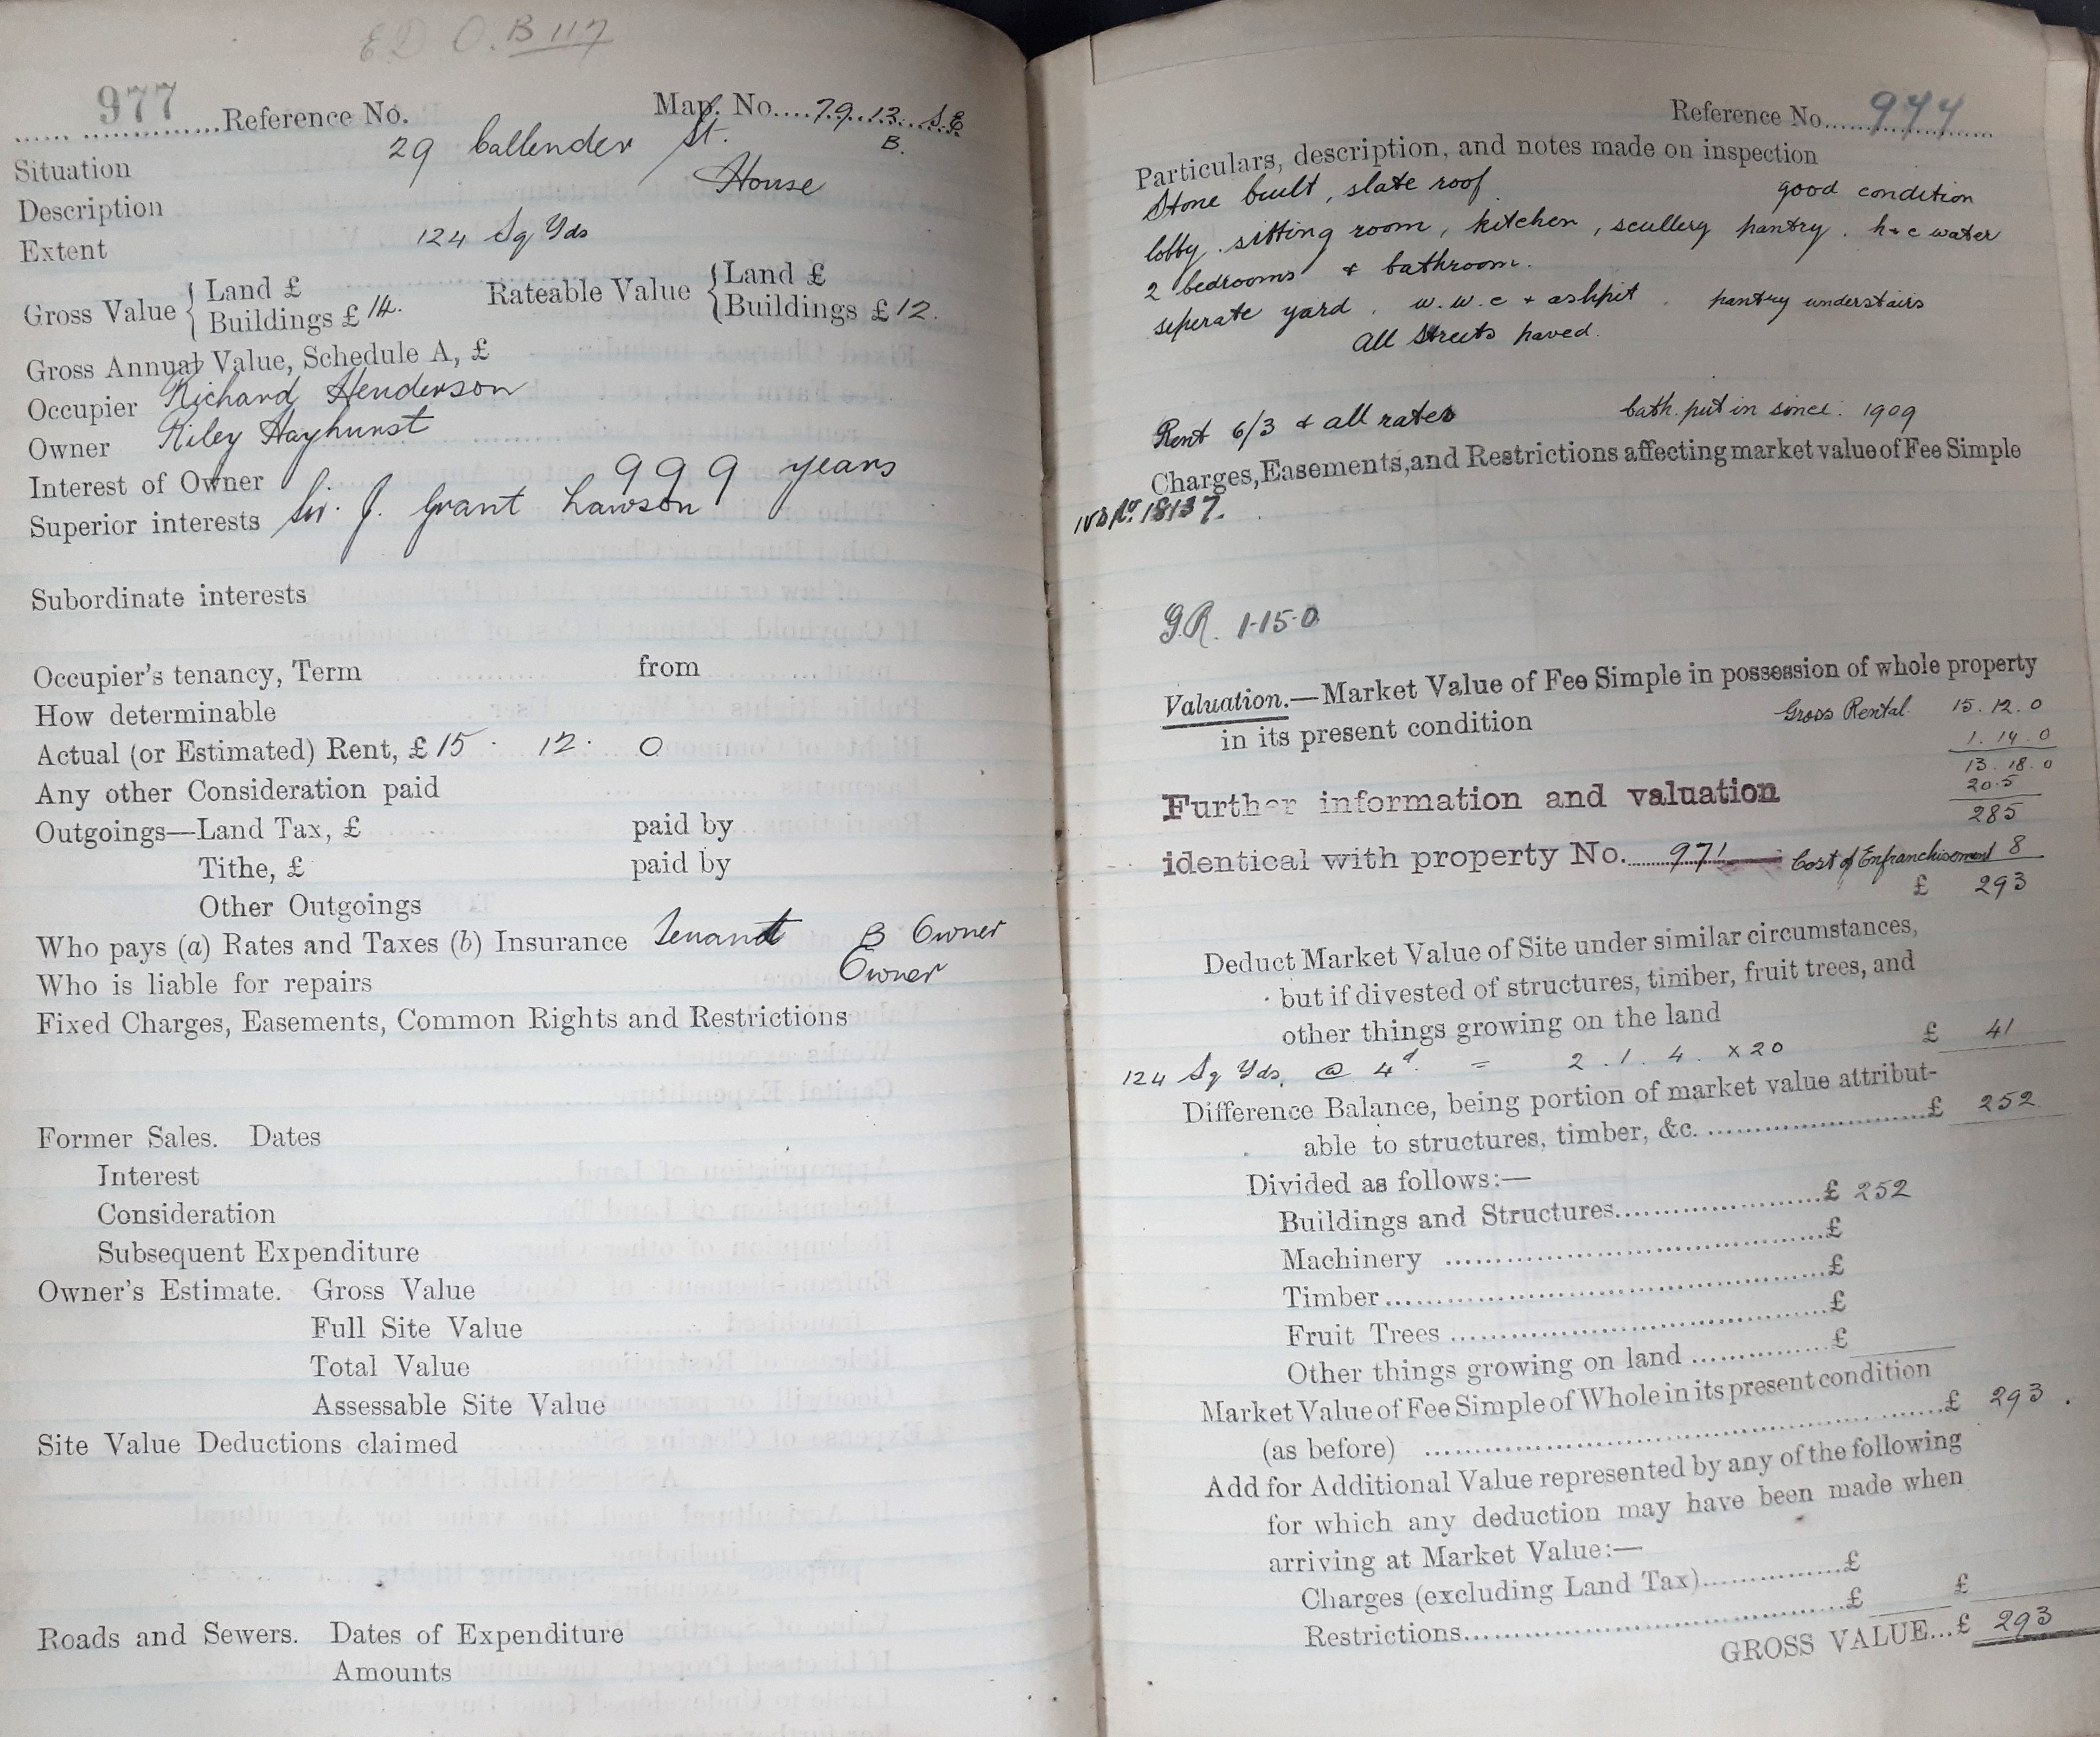 E D O. B 117
977 Reference No. Map. No. 79.13. S.E
B.
Situation 29 Callender St.
Description House
Extent 124 Sq Yds
Gross Value { Land £
Buildings £ 14.
Rateable Value { Land £
Buildings £ 12.
Gross Annual Value, Schedule A, £
Occupier Richard Henderson
Owner Riley Hayhurst
Interest of Owner 999 years
Superior interests Sir. J. Grant Lawson
Subordinate interests
Occupier's tenancy, Term from
How determinable
Actual (or Estimated) Rent, £ 15 . 12 . 0
Any other Consideration paid
Outgoings—Land Tax, £ paid by
Tithe, £ paid by
Other Outgoings
Who pays (a) Rates and Taxes (b) Insurance Tenant B Owner
Who is liable for repairs Owner
Fixed Charges, Easements, Common Rights and Restrictions
Former Sales. Dates
Interest
Consideration
Subsequent Expenditure
Owner's Estimate. Gross Value
Full Site Value
Total Value
Assessable Site Value
Site Value Deductions claimed
Roads and Sewers. Dates of Expenditure
Amounts
Reference No. 977
Particulars, description, and notes made on inspection
Stone built, slate roof good condition
lobby. sitting room, kitchen, scullery pantry. h + c water
2 bedrooms + bathroom.
seperate yard. w.w.c + ashpit. pantry understairs
All Streets paved.
Rent 6/3 + all rates bath. put in since. 1909
Charges, Easements, and Restrictions affecting market value of Fee Simple
IVD No. 18137.
G.R. 1-15-0
Valuation.—Market Value of Fee Simple in possession of whole property
in its present condition
Gross Rental. 15.12.0
1.14.0
13.18.0
20.5
285
Further information and valuation
identical with property No. 971
Cost of Enfranchisement 8
£ 293
Deduct Market Value of Site under similar circumstances,
but if divested of structures, timber, fruit trees, and
other things growing on the land £ 41
124 Sq Yds, @ 4d. = 2.1.4. x 20
Difference Balance, being portion of market value attribut-
able to structures, timber, &c. £ 252
Divided as follows:—
Buildings and Structures £ 252
Machinery £
Timber £
Fruit Trees £
Other things growing on land £
Market Value of Fee Simple of Whole in its present condition
(as before) £ 293.
Add for Additional Value represented by any of the following
for which any deduction may have been made when
arriving at Market Value:—
Charges (excluding Land Tax) £
Restrictions £ £
GROSS VALUE...£ 293